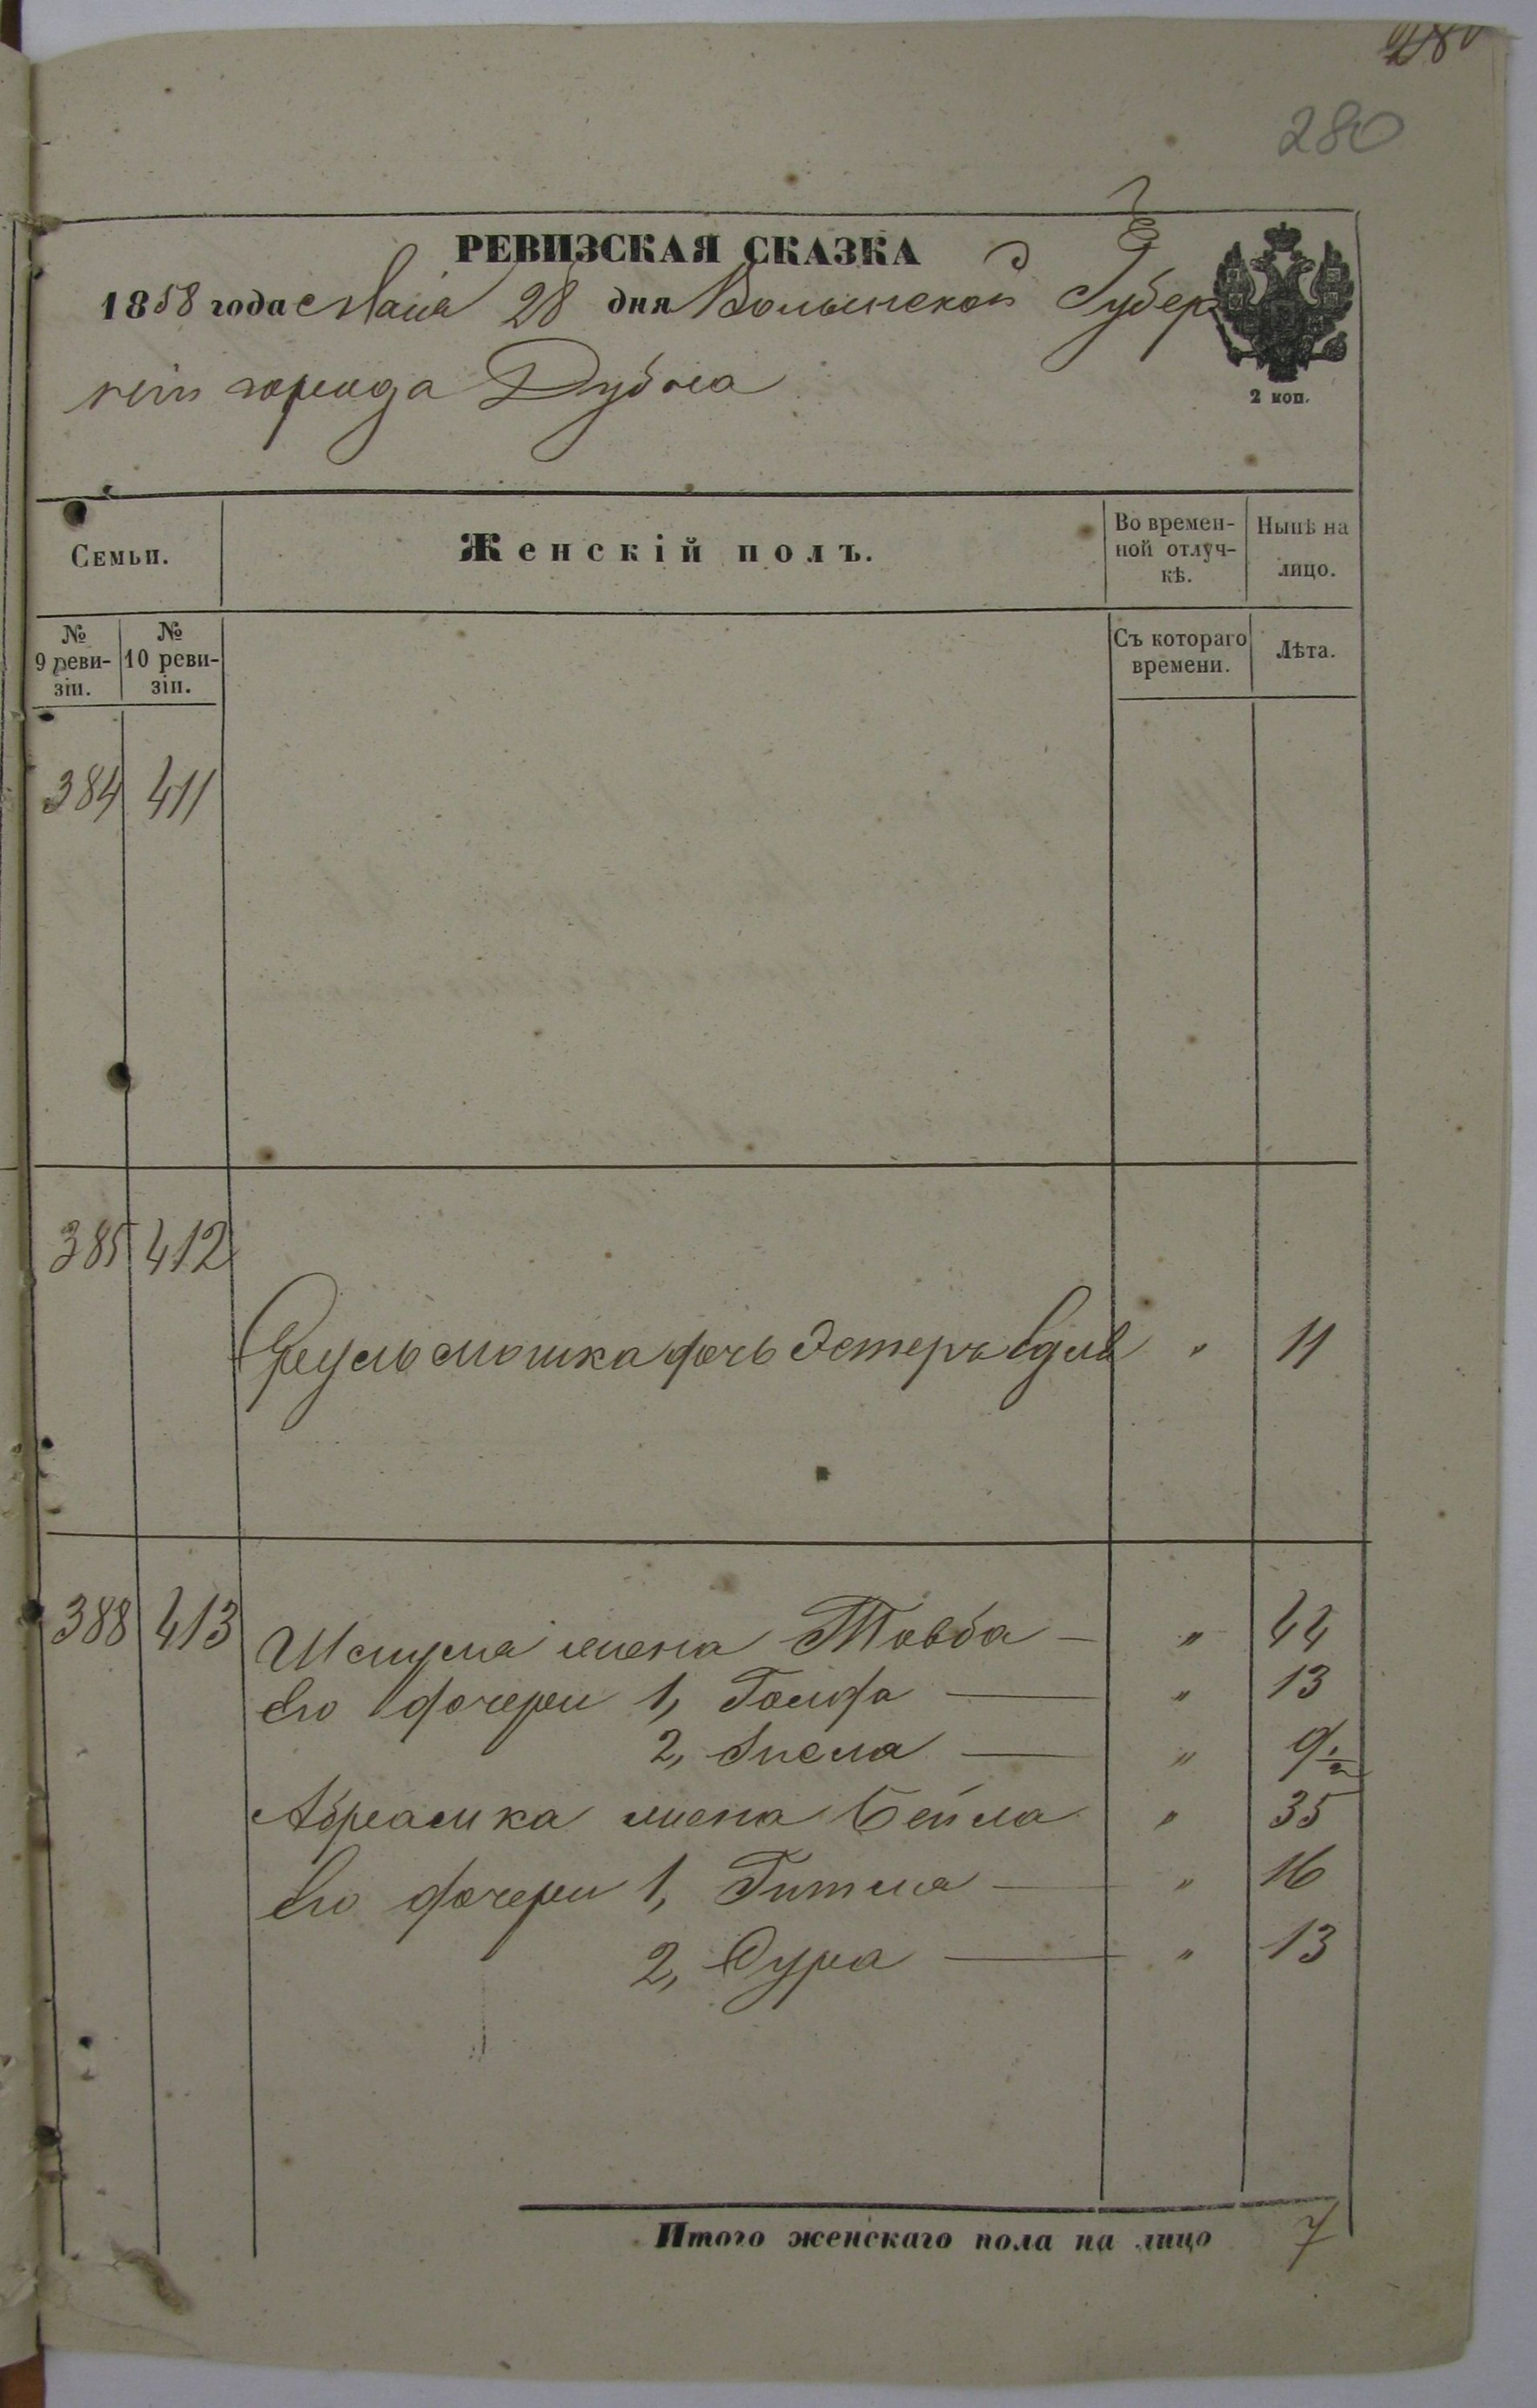 280
РЕВИЗСКАЯ СКАЗКА
1858 года Маія 28 дня Волынской Губер
ніи города Дубна
2 коп.
Семьи.
Женскій полъ.
Во времен-
ной отлуч-
кѣ.
Нынѣ на
лицо.
№
9 реви-
зіи.
№
10 реви-
зіи.
Съ котораго
времени.
Лѣта.
384 411
385 412
Мошка дочь Эстеръ " 11
388 413
Шмуля жена Товба — " 44
Его дочери 1, Голда — " 13
2, — " 9 1/2
Абрамка жена Бейла " 35
Его дочери 1, Гитля — " 16
2, Сура — " 13
Итого женскаго пола на лицо 7